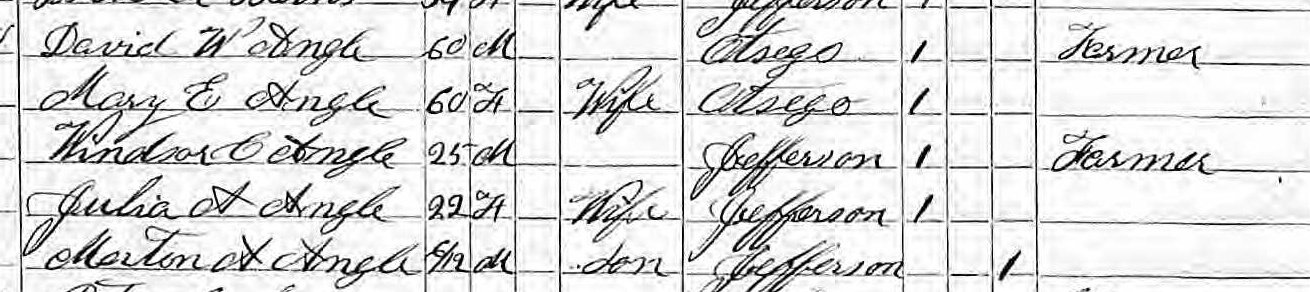 Wife Jefferson 1
David W Angle 60 M Otsego 1 Farmer
Mary E Angle 60 F Wife Otsego 1
Windsor C Angle 25 M Jefferson 1 Farmer
Julia A Angle 22 F Wife Jefferson 1
Morton A Angle 5/12 M Son Jefferson 1